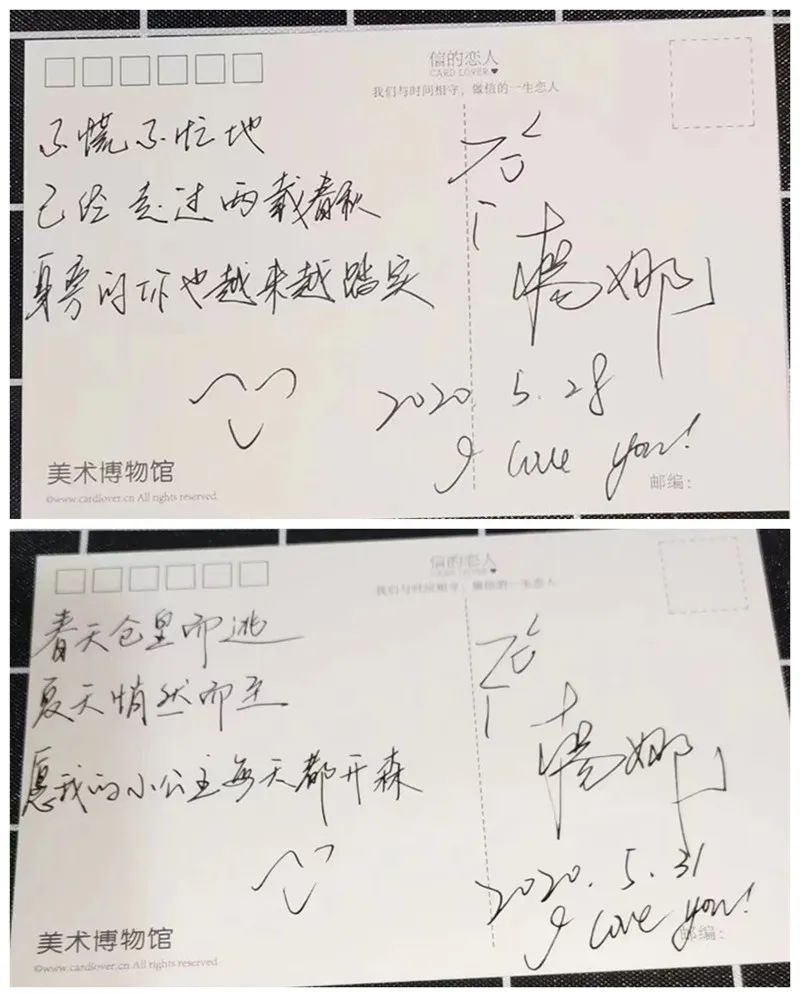 信的恋人
CARD LOVER
我们与时间相守，做信的一生恋人
不慌不忙地
已经走过两载春秋
身旁的你也越来越踏实
给
杨娜
2020.5.28
I love you!
美术博物馆
©www.cardlover.cn All rights reserved.
邮编：
信的恋人
CARD LOVER
我们与时间相守，做信的一生恋人
春天仓皇而逃
夏天悄然而至
愿我的小公主每天都开森
给
杨娜
2020.5.31
I love you!
美术博物馆
©www.cardlover.cn All rights reserved.
邮编：